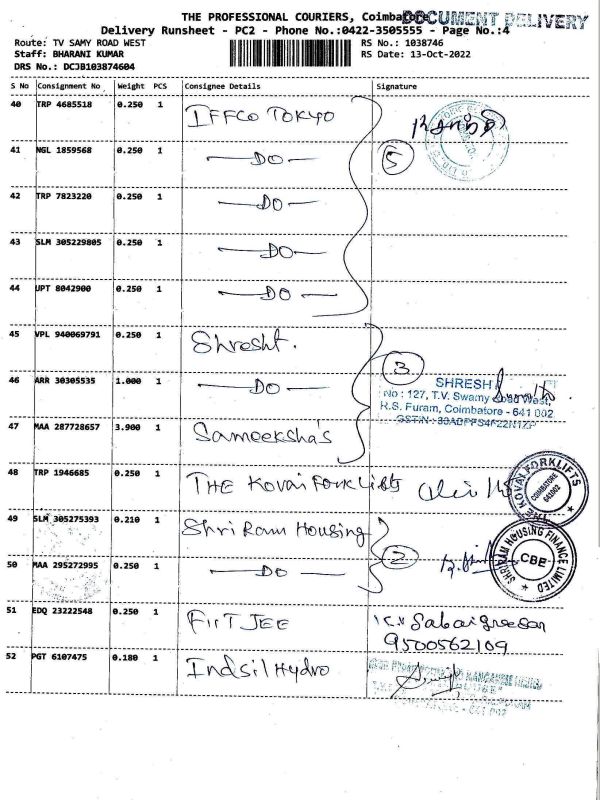 THE PROFESSIONAL COURIERS, Coimba
DOCUMENT DELIVERY
Delivery Runsheet - PC2 - Phone No.:0422-3505555 - Page No.:4
Route: TV SAMY ROAD WEST RS No.: 1038746
Staff: BHARANI KUMAR RS Date: 13-Oct-2022
DRS No.: DCJB103874604
S No Consignment No Weight PCS Consignee Details Signature
40 TRP 4685518 0.250 1 IFFCO TOKYO
41 NGL 1859568 0.250 1 —DO— 5
42 TRP 7823220 0.250 1 —DO—
43 SLM 305229805 0.250 1 —DO—
44 UPT 8042900 0.250 1 —DO—
45 VPL 940069791 0.250 1 Shresht.
3
46 ARR 30305535 1.000 1 —DO—
SHRESH
No : 127, T.V. Swamy Road West,
R.S. Puram, Coimbatore - 641 002
47 MAA 287728657 3.900 1 Sameeksha's
48 TRP 1946685 0.250 1 THE Kovai Forklifts
THE KOVAI FORKLIFTS
COIMBATORE
641002
49 SLM 305275393 0.210 1 Shri Ram Housing
2
SHRIRAM HOUSING FINANCE LIMITED
CBE
50 MAA 295272995 0.250 1 —DO—
51 EDQ 23222548 0.250 1 FIIT JEE
9500562109
52 PGT 6107475 0.180 1 Indsil Hydro